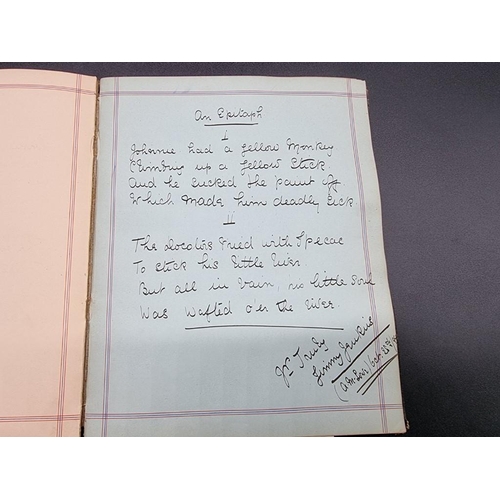 An Epitaph
I
Johnnie had a yellow Monkey
Climbing up a yellow Stick
And he sucked the paint off
Which made him deadly sick
II
The doctors tried with Specac
To his little liver
But all in vain, his little Soul
Was Wafted o'er the River.
Yrs Truly
Jimmy Jenkins